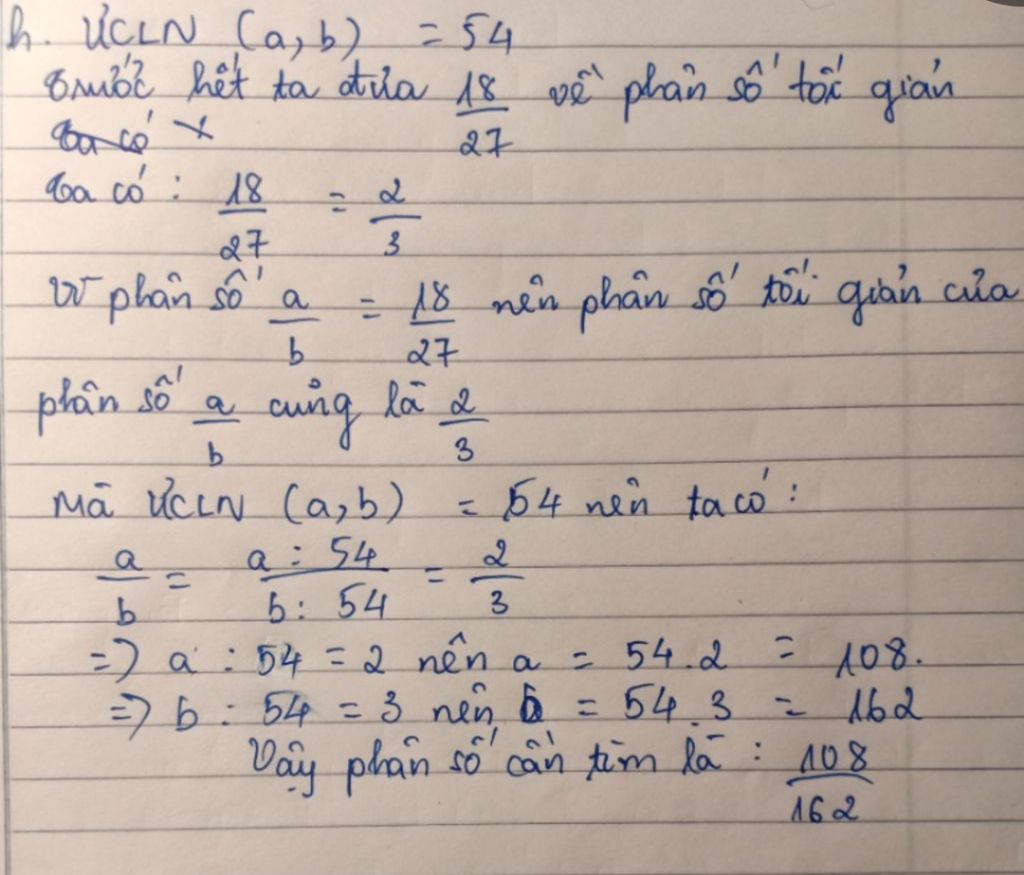 h. ƯCLN (a,b) = 54
Trước hết ta đưa 18/27 về phân số tối giản
Ta có
Ta có : 18/27 = 2/3
Vì phân số a/b = 18/27 nên phân số tối giản của
phân số a/b cũng là 2/3
Mà ƯCLN (a,b) = 54 nên ta có :
a/b = a : 54 / b : 54 = 2/3
=> a : 54 = 2 nên a = 54.2 = 108.
=> b : 54 = 3 nên b = 54.3 = 162
Vậy phân số cần tìm là : 108/162